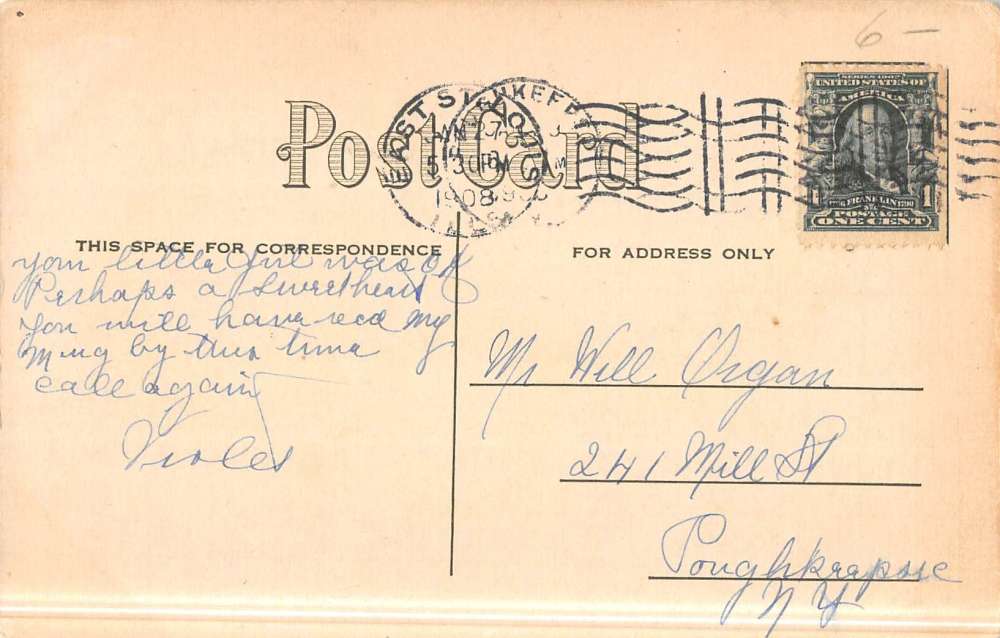 6 –
Post Card
SERIES 1902
UNITED STATES OF
AMERICA
1 FRANKLIN 1790 1
POSTAGE
ONE CENT
EAST ST. LOUIS
5 30 PM
1908
ILLS.
THIS SPACE FOR CORRESPONDENCE
FOR ADDRESS ONLY
your little girl was OK
Perhaps a Sweetheart
you will have recd my
by this time
call again
Violet
Mr Will Organ
241 Mill St
Poughkeepsie
NY